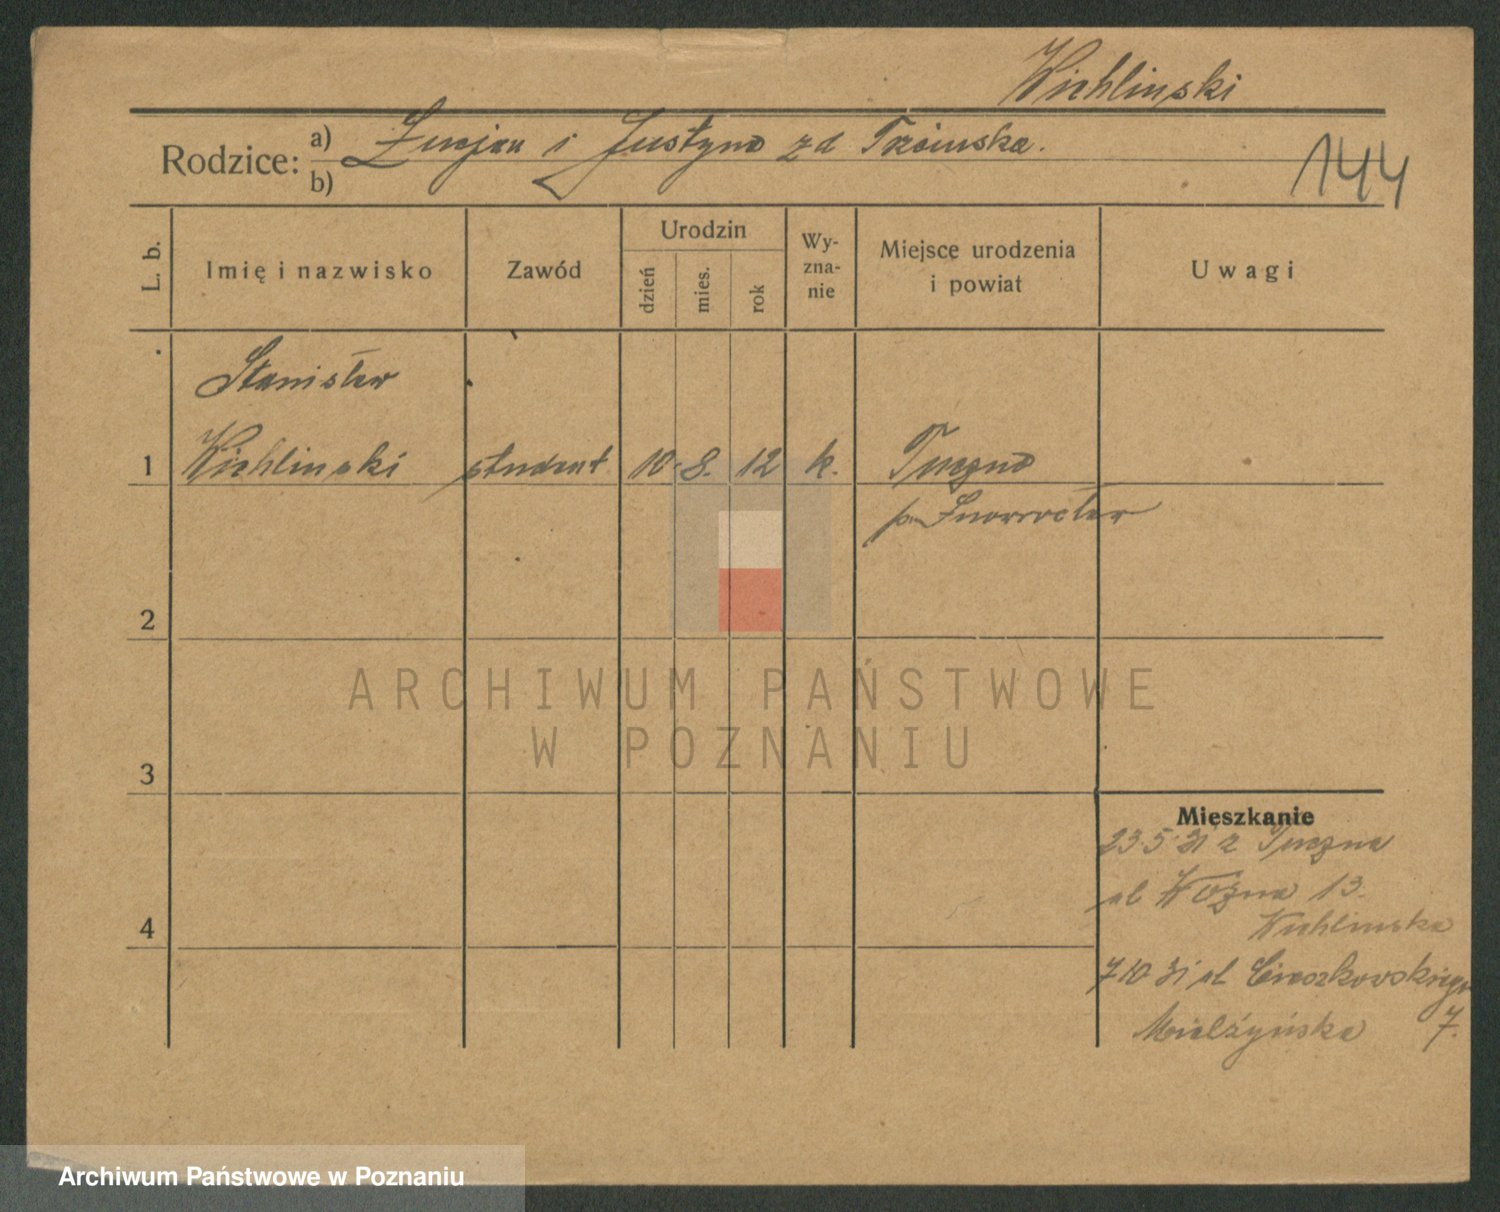 Wichlinski
Rodzice: a) Łucjan i Justyna zd
b)
144
L. b.
Imię i nazwisko
Zawód
Urodzin
dzień
mies.
rok
Wy-
zna-
nie
Miejsce urodzenia
i powiat
Uwagi
Stanisław
1 Wichlinski student 10. 8. 12 k. Tuczno
p. Inowrocław
2
ARCHIWUM PAŃSTWOWE
W POZNANIU
3
Mieszkanie
23 5 31 z Tuczna
ul Woźna 13.
Wichlinska
4
7 10 31 ul Cieszkowskiego
Mielżyńska 7.
Archiwum Państwowe w Poznaniu